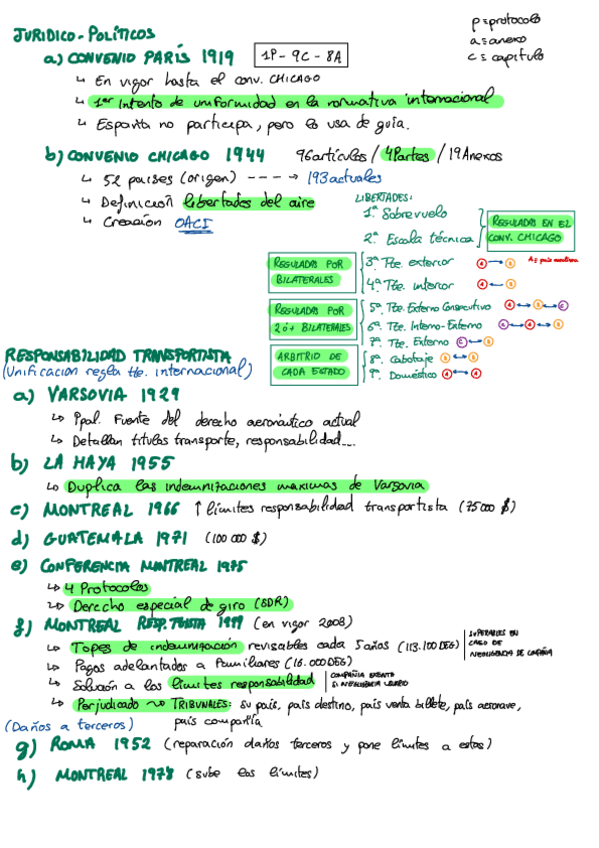 JURIDICO-POLÍTICOS
p = protocolo
a = anexo
c = capitulo
a) CONVENIO PARÍS 1919 1P - 9C - 8A
↳ En vigor hasta el conv. CHICAGO
↳ 1er Intento de uniformidad en la normativa internacional
↳ España no participa, pero lo usa de guía.
b) CONVENIO CHICAGO 1944 96 artículos / 4 Partes / 19 Anexos
↳ 52 países (origen) ----→ 193 actuales
↳ Definición libertades del aire
↳ Creación OACI
LIBERTADES:
1ª Sobrevuelo
2ª Escala técnica
REGULADAS EN EL
CONV. CHICAGO
REGULADAS POR
BILATERALES
3ª Tte. exterior
A = país
4ª Tte. interior
REGULADAS POR
2 ó + BILATERALES
5ª Tte. Externo Consecutivo
6ª Tte. Interno-Externo
7ª Tte. Externo
ARBITRIO DE
CADA ESTADO
8ª Cabotaje
9ª Doméstico
RESPONSABILIDAD TRANSPORTISTA
(Unificación regla tte. internacional)
a) VARSOVIA 1929
↳ Ppal. Fuente del derecho aeronáutico actual
↳ Detallan titulos transporte, responsabilidad...
b) LA HAYA 1955
↳ Duplica las indemnizaciones maximas de Varsovia
c) MONTREAL 1966 ↑ límites responsabilidad transportista (75000 $)
d) GUATEMALA 1971 (100 000 $)
e) CONFERENCIA MONTREAL 1975
↳ 4 Protocolos
↳ Derecho especial de giro (SDR)
f) MONTREAL RESP. TTISTA 1999 (en vigor 2003)
↳ Topes de indemnización revisables cada 5 años (113.100 DEG)
SUPERABLES EN
CASO DE
NEGLIGENCIA DE COMPAÑIA
↳ Pagos adelantados a familiares (16.000 DEG)
↳ Solución a los límites responsabilidad
COMPAÑIA EXENTA
SI NEGLIGENCIA
↳ Perjudicado → TRIBUNALES: su país, país destino, país venta billete, país aeronave,
país compañía
(Daños a terceros)
g) ROMA 1952 (reparación daños terceros y pone límites a estos)
h) MONTREAL 1978 (sube los límites)